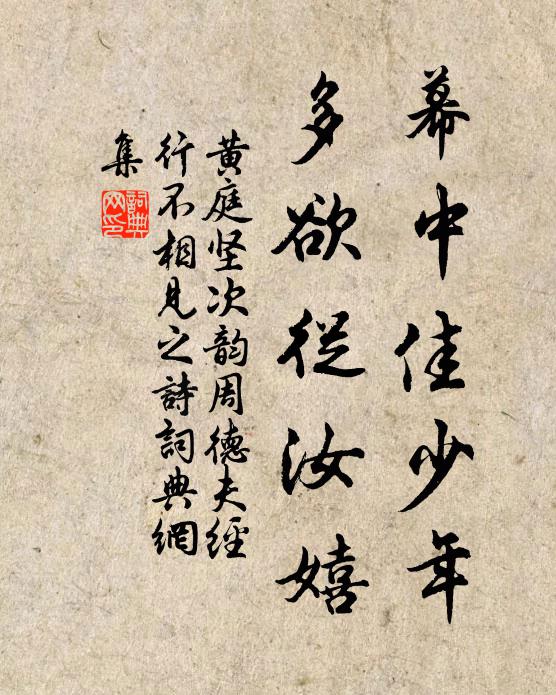 幕中佳少年
多欲從汝嬉
黄庭坚次韵周德夫經
行不相見之詩詞典網
集
詞典
网印